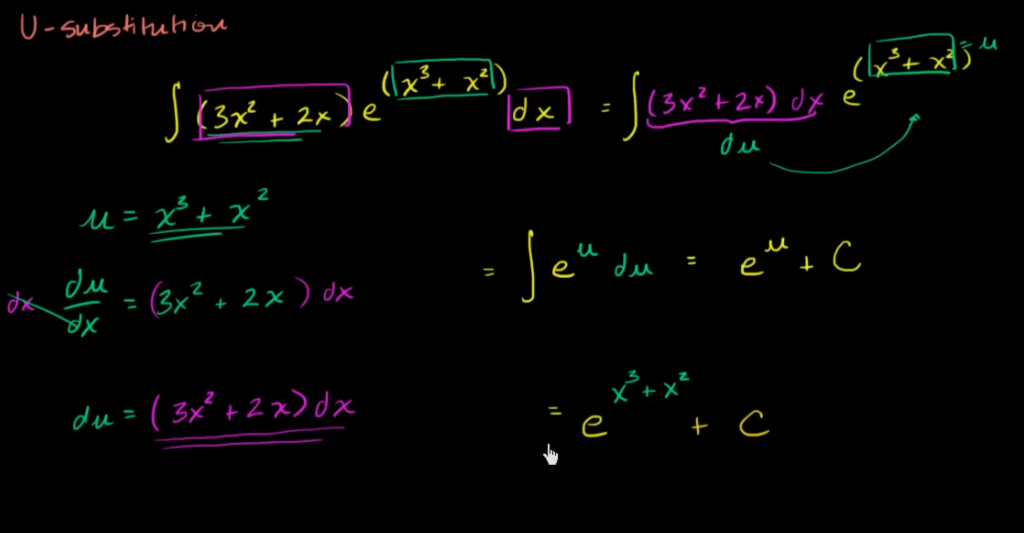 U-substitution
∫ (3x² + 2x) e^(x³ + x²) dx = ∫ (3x² + 2x) dx e^(x³ + x²) = u
du
u = x³ + x²
dx du/dx = (3x² + 2x) dx
= ∫ e^u du = e^u + C
du = (3x² + 2x) dx
= e^(x³ + x²) + C